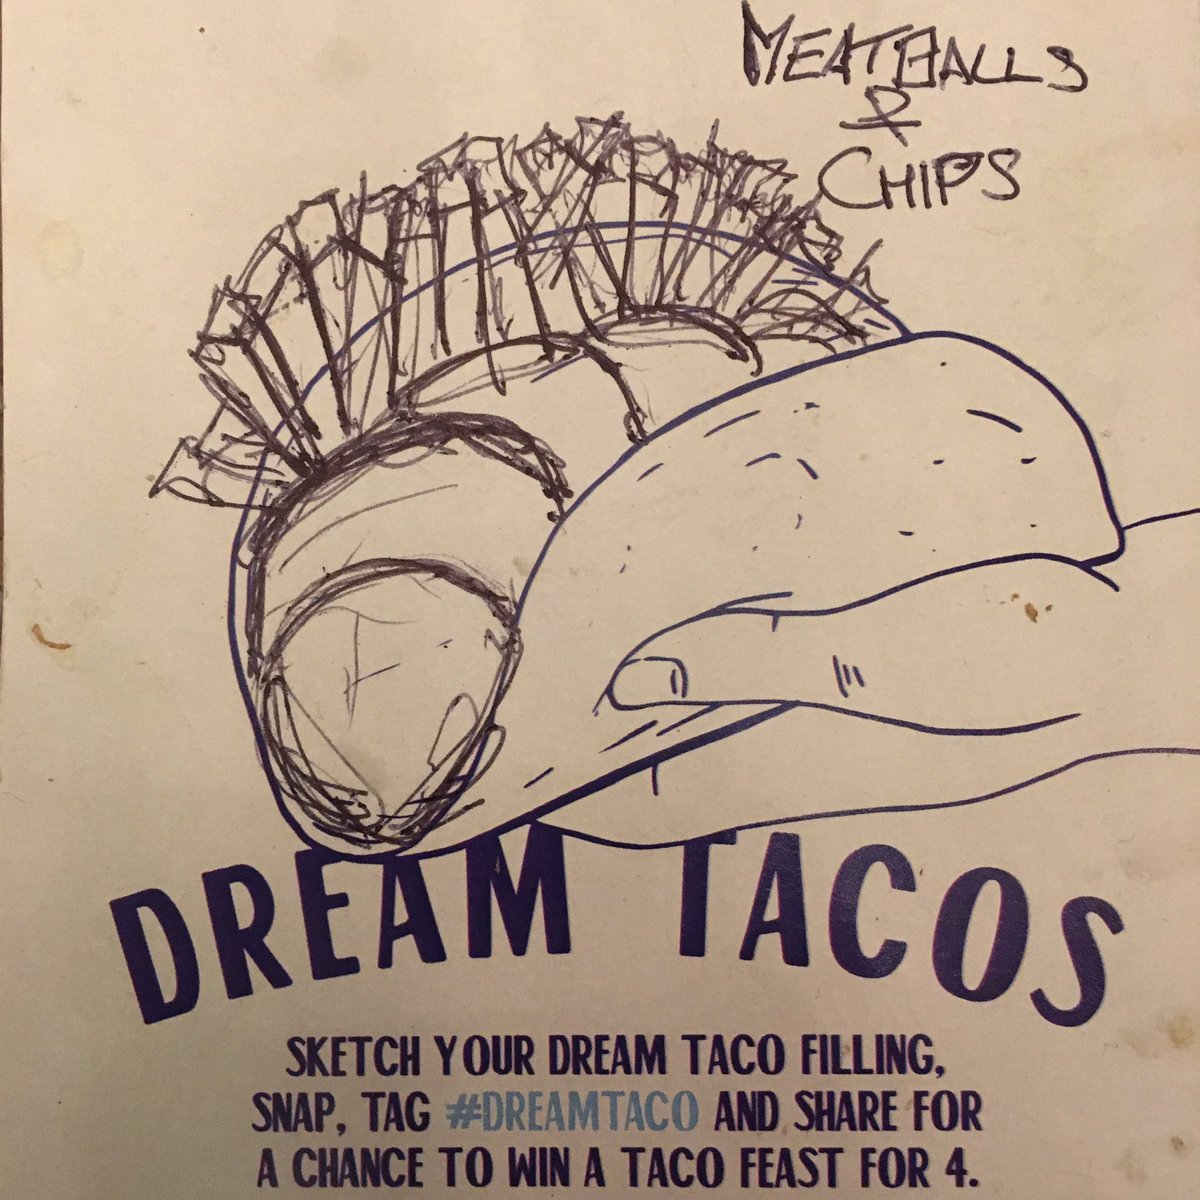 MEATBALLS
&
CHIPS
DREAM TACOS
SKETCH YOUR DREAM TACO FILLING,
SNAP, TAG #DREAMTACO AND SHARE FOR
A CHANCE TO WIN A TACO FEAST FOR 4.